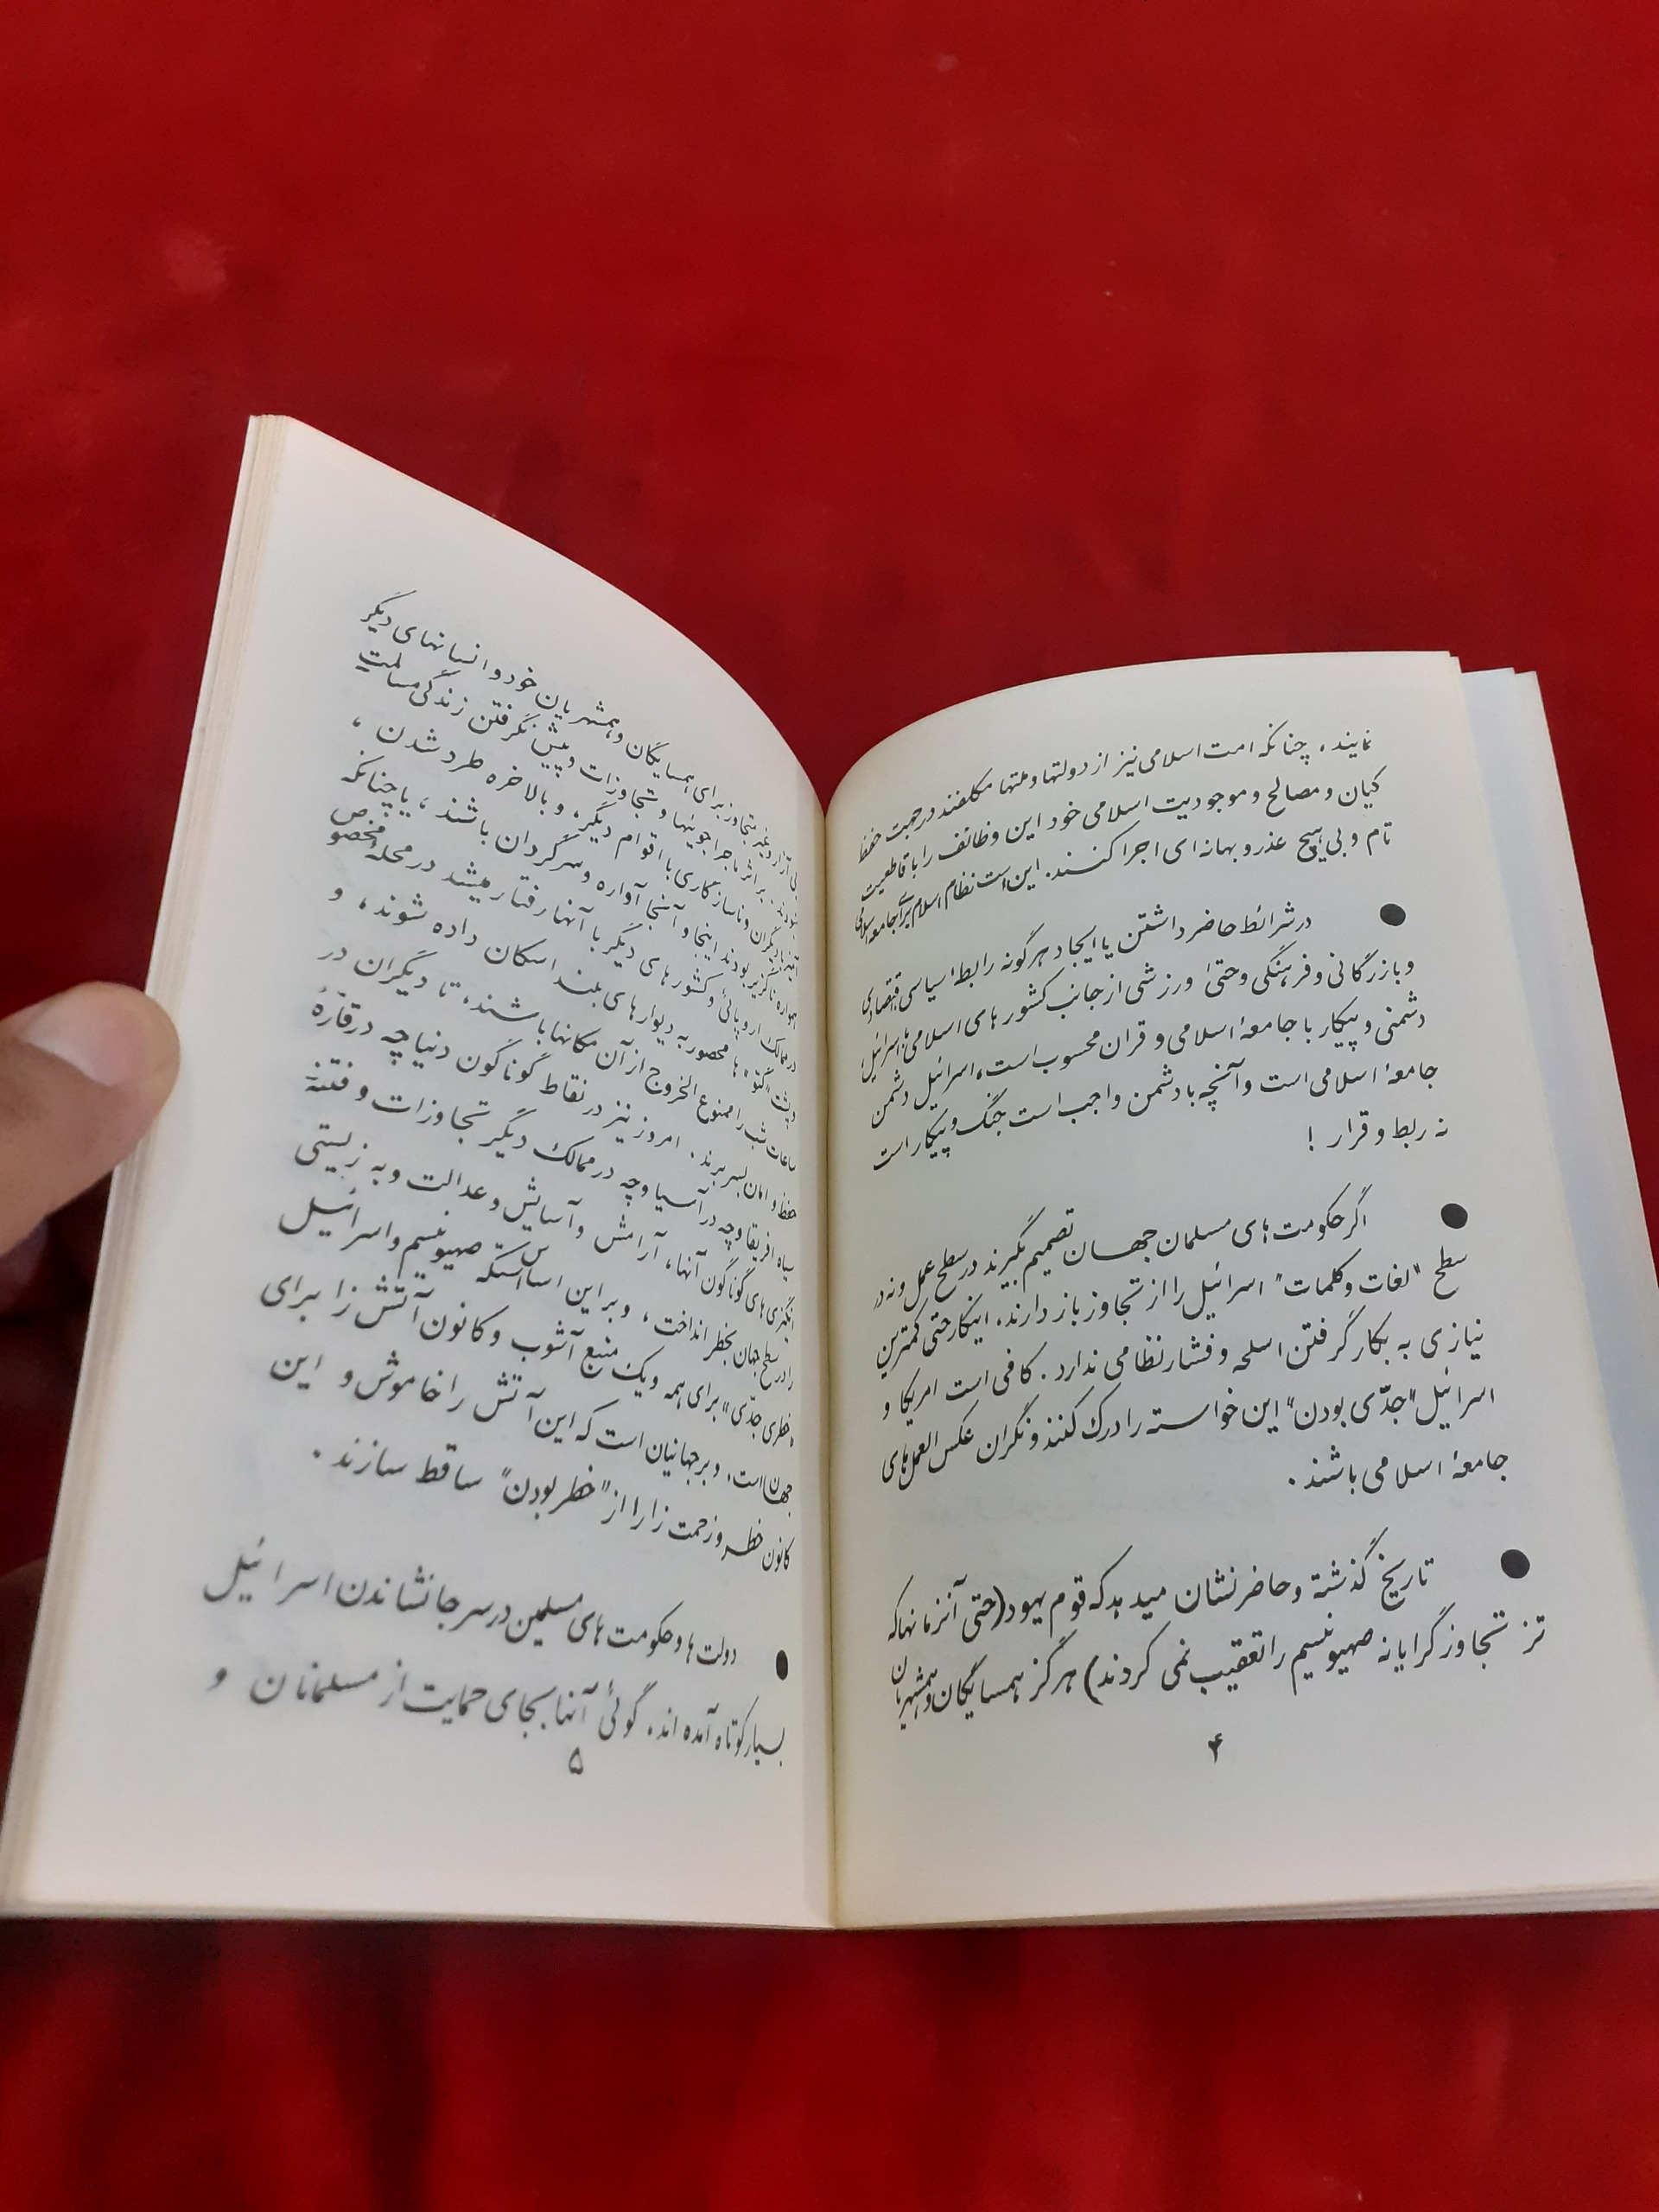 نمایند. چنانکه امت اسلامی نیز از دولتها و ملتها مکلفند در جهت حفظ
کیان و مصالح و موجودیت اسلامی خود این وظائف را با قاطعیت
تام و بی هیچ عذر و بهانه ای اجرا کنند. این است نظام اسلام برای جامعه اسلامی
● در شرائط حاضر داشتن یا ایجاد هرگونه رابطهٔ سیاسی، اقتصادی
و بازرگانی و فرهنگی و حتیٰ ورزشی از جانب کشورهای اسلامی با اسرائیل
دشمنی و پیکار با جامعهٔ اسلامی و قران محسوب است، اسرائیل دشمن
جامعهٔ اسلامی است و آنچه با دشمن واجب است جنگ و پیکار است
نه ربط و قرار !
● اگر حکومت های مسلمان جهان تصمیم بگیرند در سطح عمل و نه در
سطح "لغات و کلمات" اسرائیل را از تجاوز باز دارند، اینکار حتی کمترین
نیازی به بکار گرفتن اسلحه و فشار نظامی ندارد. کافی است امریکا و
اسرائیل "جدّی بودن" این خواسته را درک کنند و نگران عکس العمل های
جامعهٔ اسلامی باشند.
● تاریخ گذشته و حاضر نشان میدهد که قوم یهود (حتی آنزمانها که
تز تجاوزگرایانه صهیونیسم را تعقیب نمی کردند) هرگز همسایگان و همشهریان
۴
و غیر متجاوز برای همسایگان و همشهریان خود و انسانهای دیگر
نبودند. بر اثر ماجراجوئیها و تجاوزات و پیش نگرفتن زندگی مسالمت
با دیگران و ناسازگاری با اقوام دیگر، و بالاخره طرد شدن،
همواره ناگزیر بودند اینجا و آنجا آواره و سرگردان باشند، یا چنانکه
در ممالک اروپائی و کشورهای دیگر با آنها رفتار میشد در محلهٔ مخصوص
در پشت "گتو" ها محصور به دیوارهای بلند اسکان داده شوند، و
ساعات شب را ممنوع الخروج از آن مکانها باشند، تا دیگران در
حفظ و امان بسر برند. امروز نیز در نقاط گوناگون دنیا چه در قارّهٔ
سیاه افریقا و چه در آسیا و چه در ممالک دیگر تجاوزات و فتنه
انگیزی های گوناگون آنها، آرامش و آسایش و عدالت و به زیستی
را در سطح جهان بخطر انداخت، و بر این اساس است که صهیونیسم و اسرائیل
"خطری جدّی" برای همه و یک منبع آشوب و کانون آتش زا برای
جهان است. و بر جهانیان است که این آتش را خاموش و این
کانون خطر و زحمت زا را از "خطر بودن" ساقط سازند.
● دولت ها و حکومت های مسلمین در سر جا نشاندن اسرائیل
بسیار کوتاه آمده اند. گوئی آنها بجای حمایت از مسلمانان و
۵